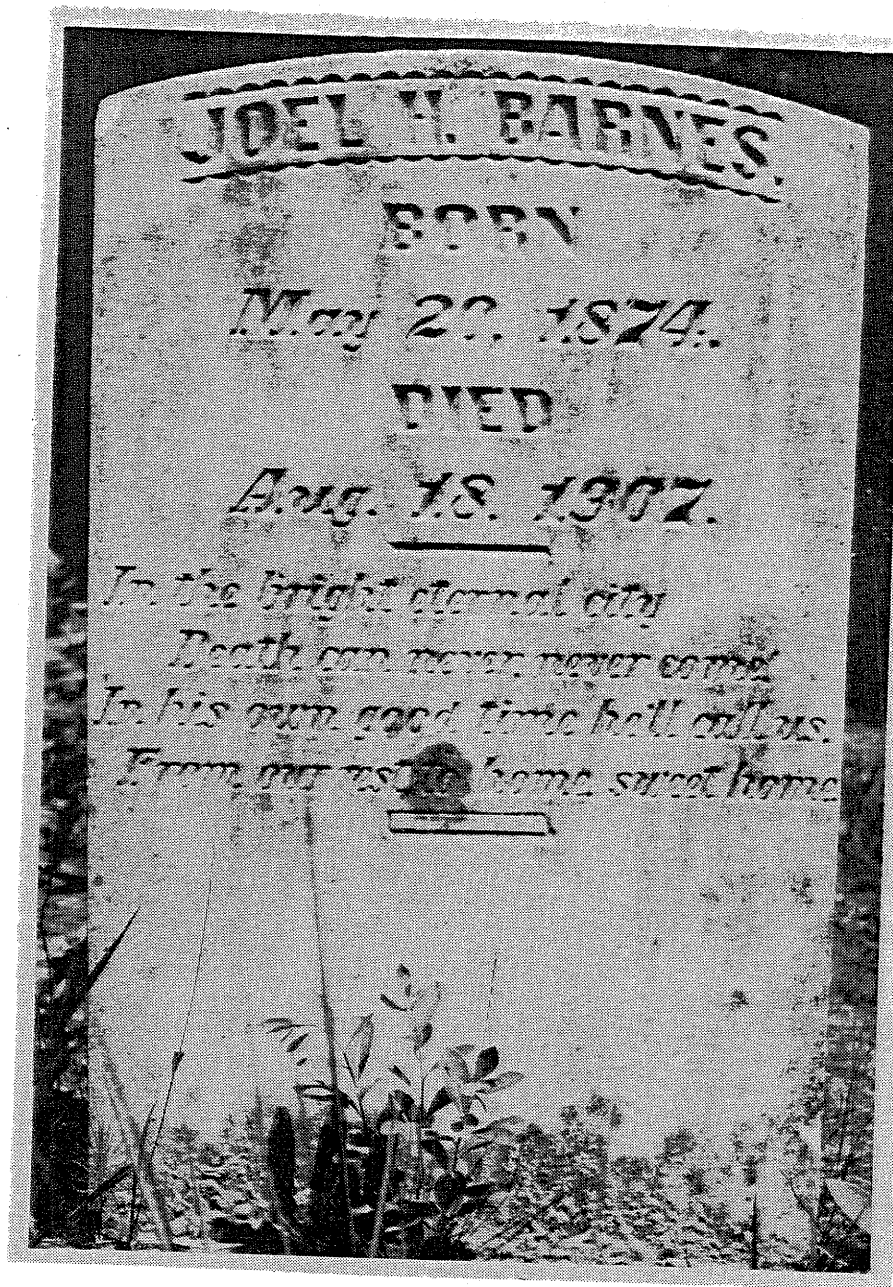 JOEL H. BARNES.
BORN
May 22. 1874.
DIED
Aug. 18. 1907.
In the bright eternal city
Death can never, never come,
In his own good time he'll call us.
From our rest to home sweet home